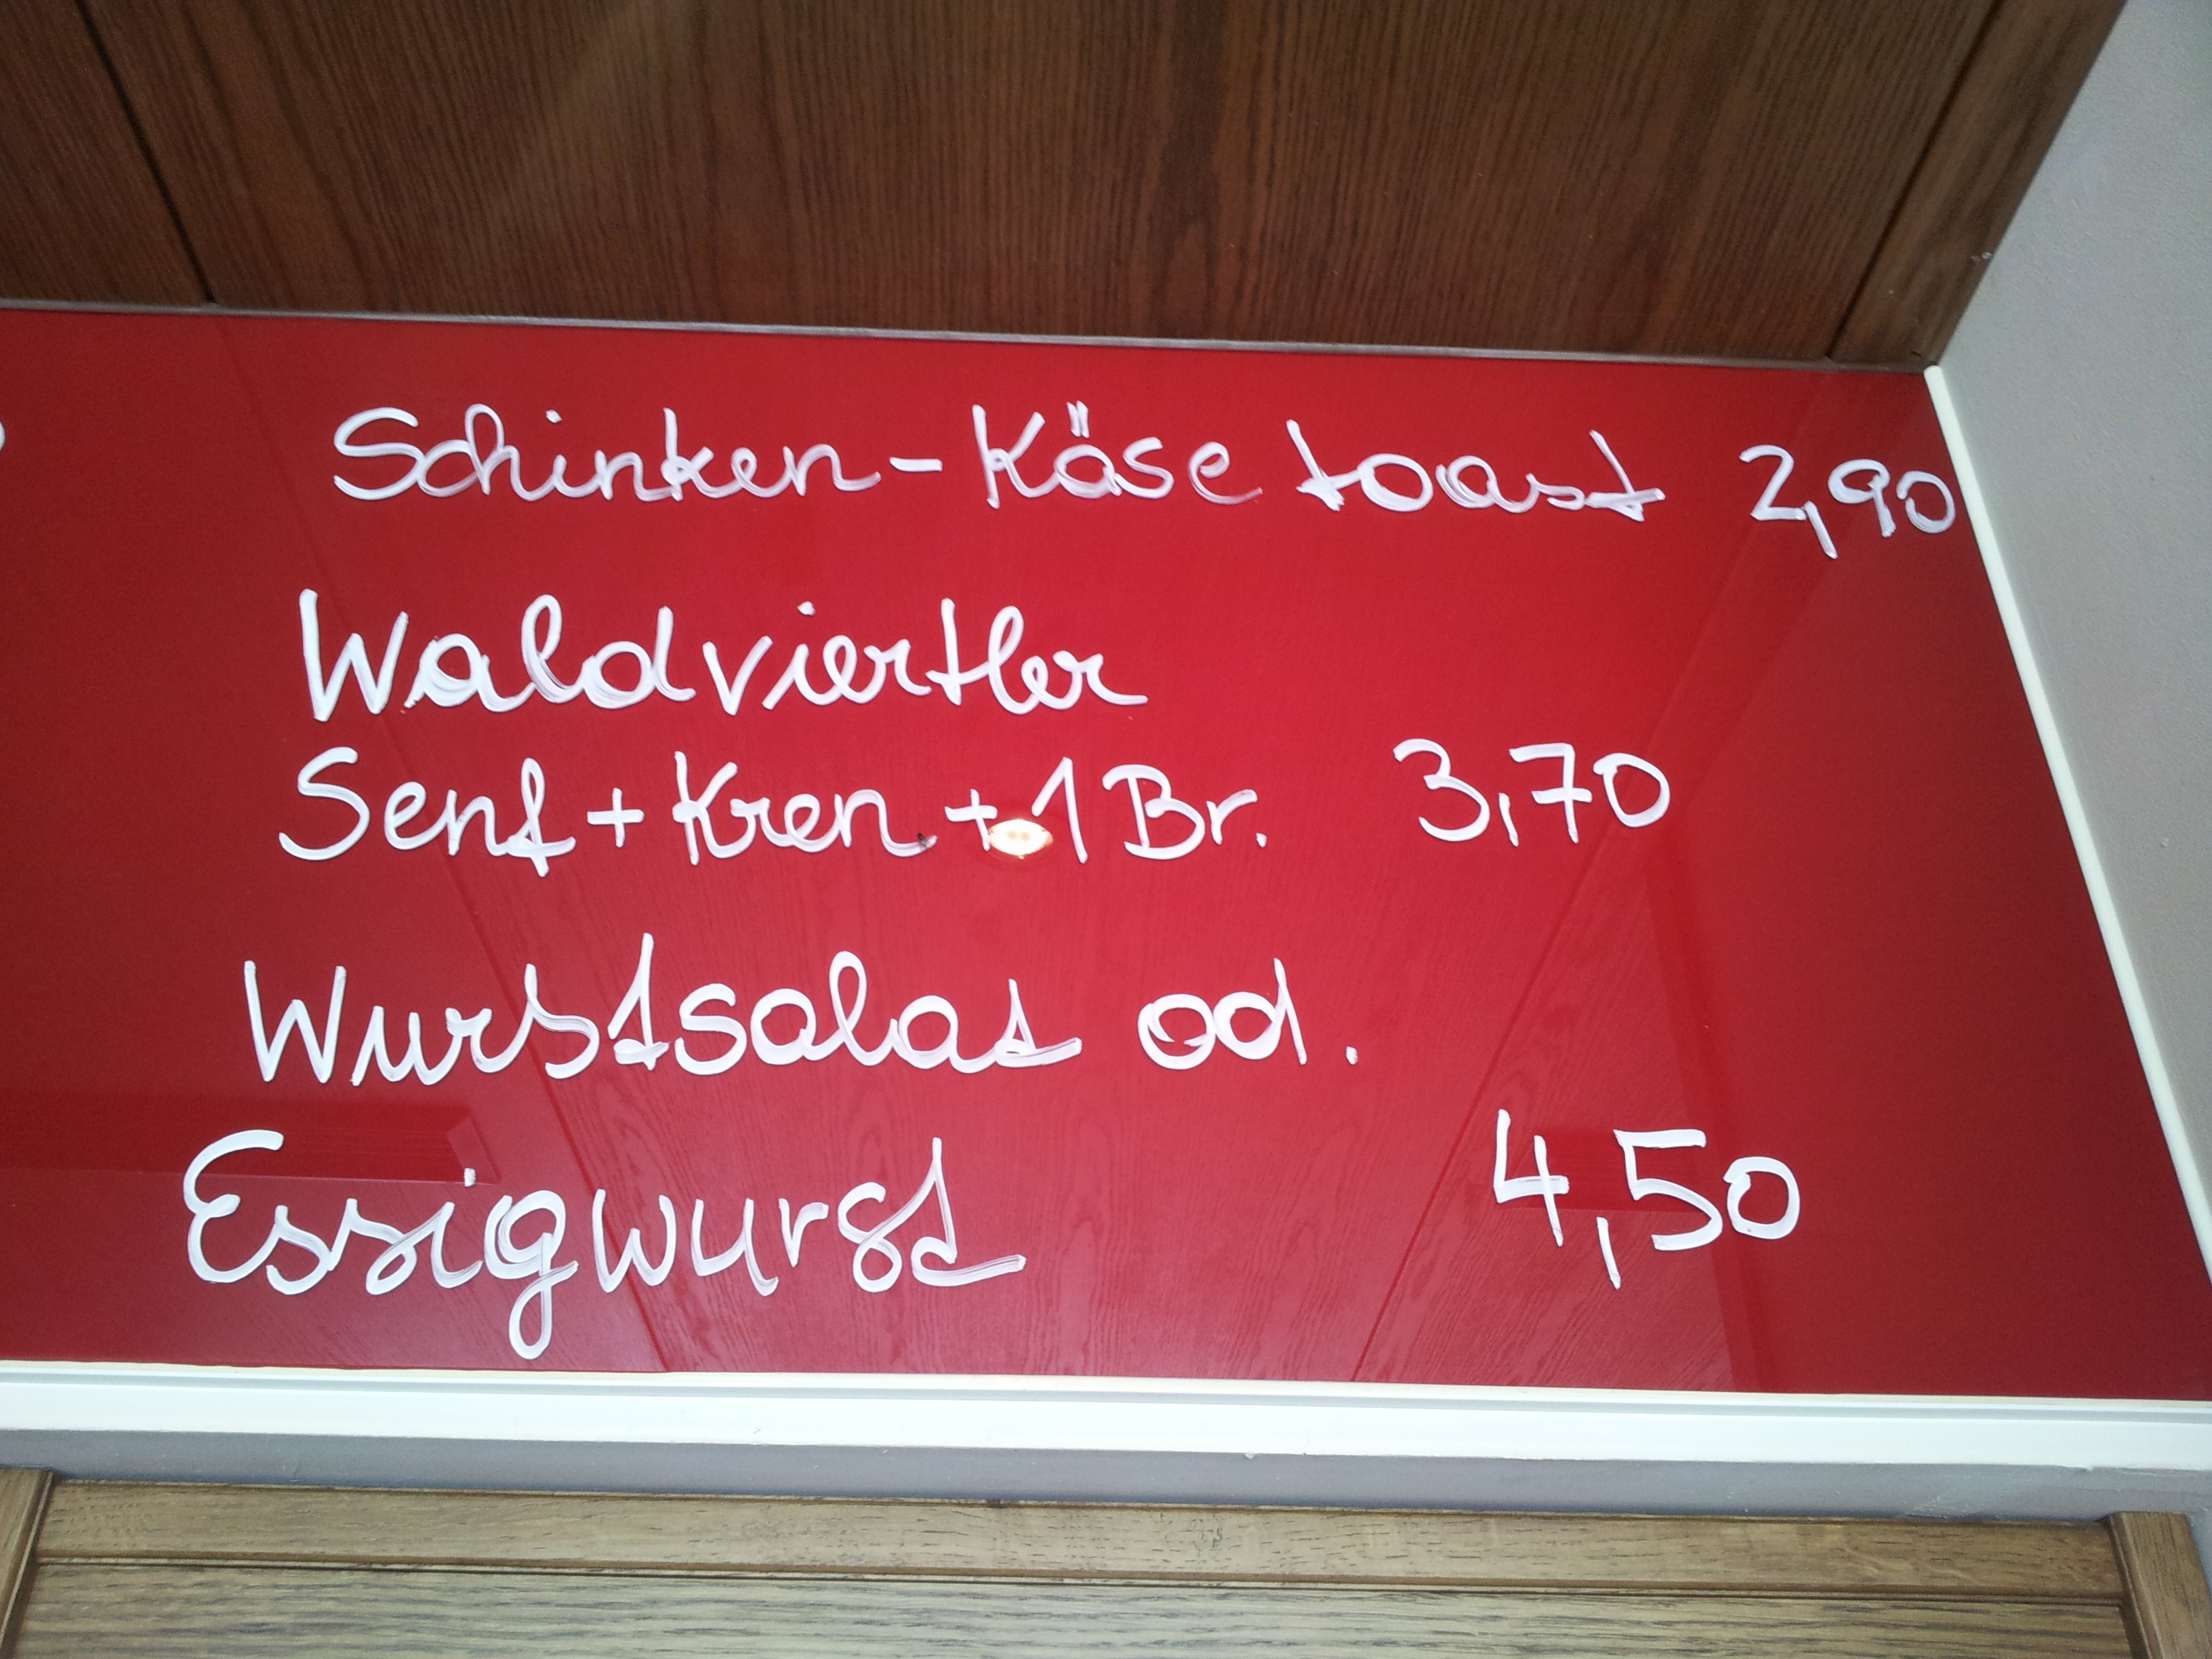 Schinken-Käse toast 2,90
Waldviertler
Senf + Kren + 1 Br. 3,70
Wurstsalat od.
Essigwurst 4,50